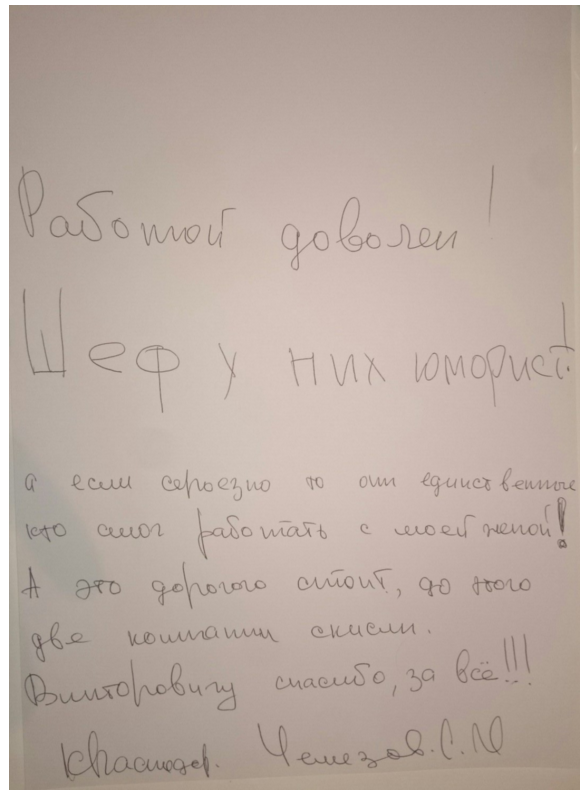 Работой доволен!
Шеф у них юморист!
а если серьезно то они единственные
кто смог работать с моей женой!
А это дорогого стоит, до того
две компании скисли.
Викторовичу спасибо, за всё!!!
Краснодар. Чемезов.С.М